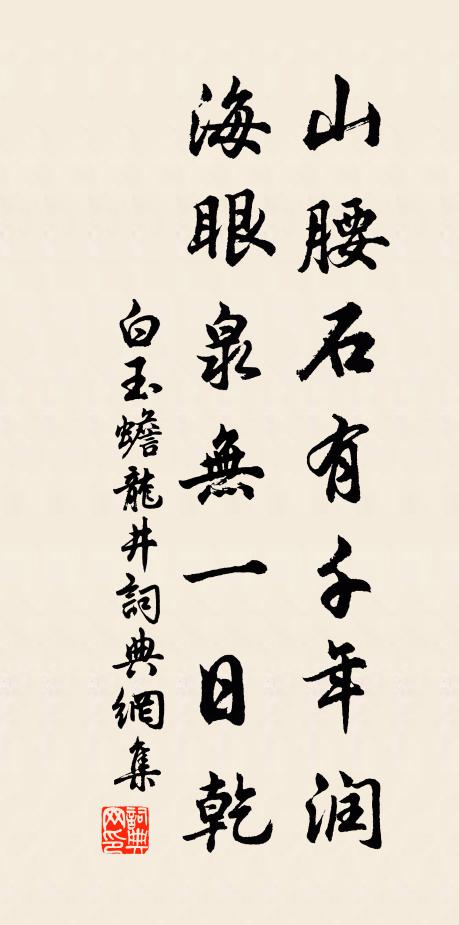 山腰石有千年润
海眼泉無一日乾
白玉蟾龍井詞典網集
詞典網印